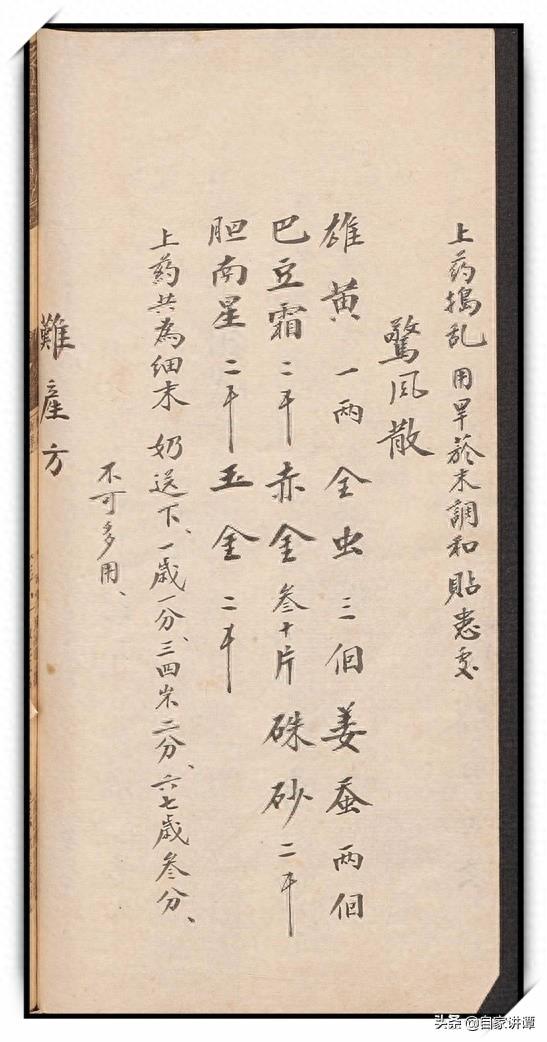 上药搗乱用旱菸末調和貼患处
驚风散
雄黄一两全虫三個姜蚕两個
巴豆霜二千赤金叁十片硃砂二千
胆南星二千玉金二千
上药共為细末奶送下、一歳一分、三四岁二分、六七歳叁分、
不可多用、
難產方
头条 @自家讲谭